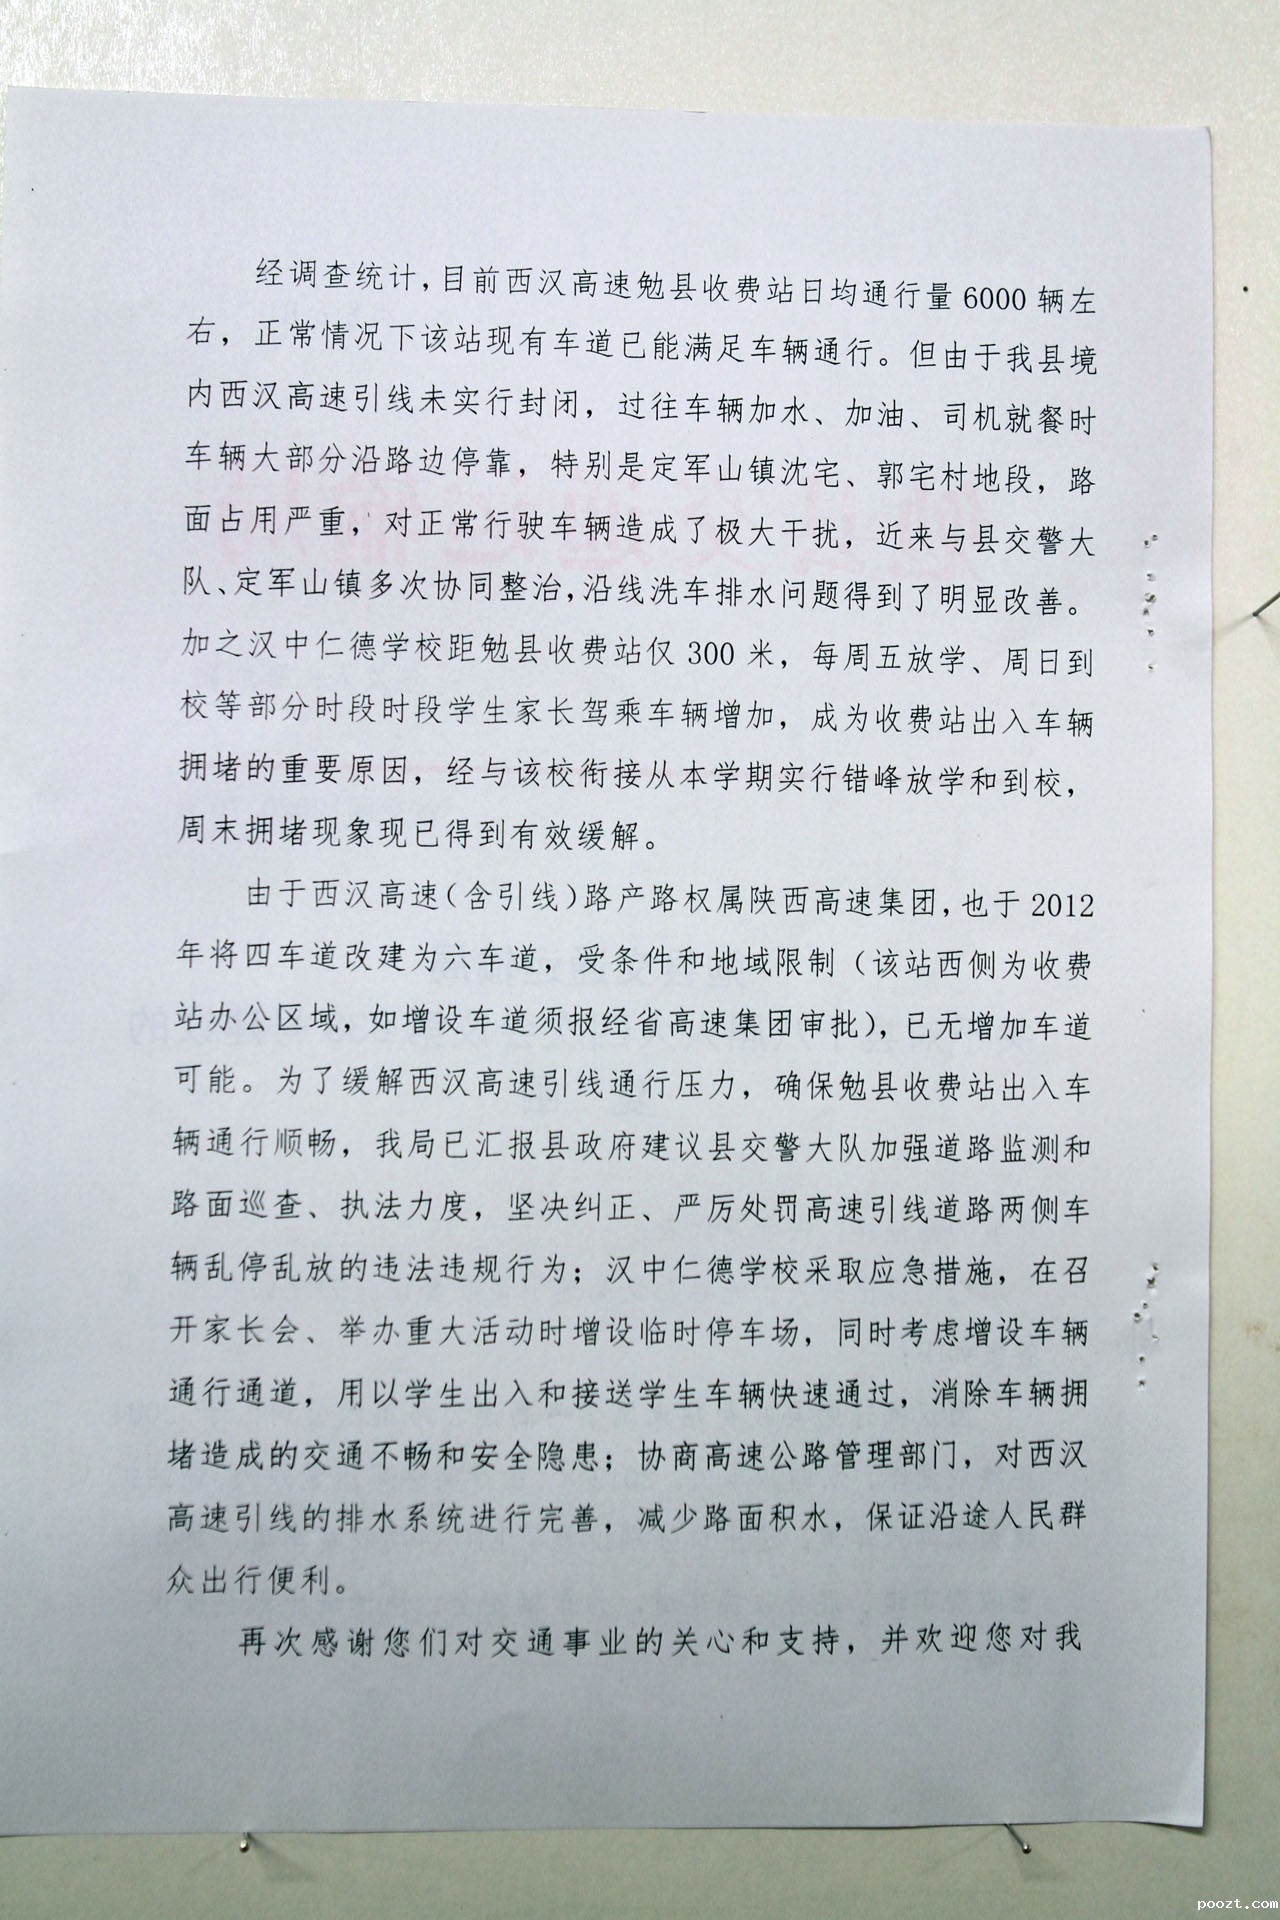 经调查统计，目前西汉高速勉县收费站日均通行量 6000 辆左
右，正常情况下该站现有车道已能满足车辆通行。但由于我县境
内西汉高速引线未实行封闭，过往车辆加水、加油、司机就餐时
车辆大部分沿路边停靠，特别是定军山镇沈宅、郭宅村地段，路
面占用严重，对正常行驶车辆造成了极大干扰，近来与县交警大
队、定军山镇多次协同整治，沿线洗车排水问题得到了明显改善。
加之汉中仁德学校距勉县收费站仅 300 米，每周五放学、周日到
校等部分时段时段学生家长驾乘车辆增加，成为收费站出入车辆
拥堵的重要原因，经与该校衔接从本学期实行错峰放学和到校，
周末拥堵现象现已得到有效缓解。
由于西汉高速（含引线）路产路权属陕西高速集团，也于 2012
年将四车道改建为六车道，受条件和地域限制（该站西侧为收费
站办公区域，如增设车道须报经省高速集团审批），已无增加车道
可能。为了缓解西汉高速引线通行压力，确保勉县收费站出入车
辆通行顺畅，我局已汇报县政府建议县交警大队加强道路监测和
路面巡查、执法力度，坚决纠正、严厉处罚高速引线道路两侧车
辆乱停乱放的违法违规行为；汉中仁德学校采取应急措施，在召
开家长会、举办重大活动时增设临时停车场，同时考虑增设车辆
通行通道，用以学生出入和接送学生车辆快速通过，消除车辆拥
堵造成的交通不畅和安全隐患；协商高速公路管理部门，对西汉
高速引线的排水系统进行完善，减少路面积水，保证沿途人民群
众出行便利。
再次感谢您们对交通事业的关心和支持，并欢迎您对我
poozt.com